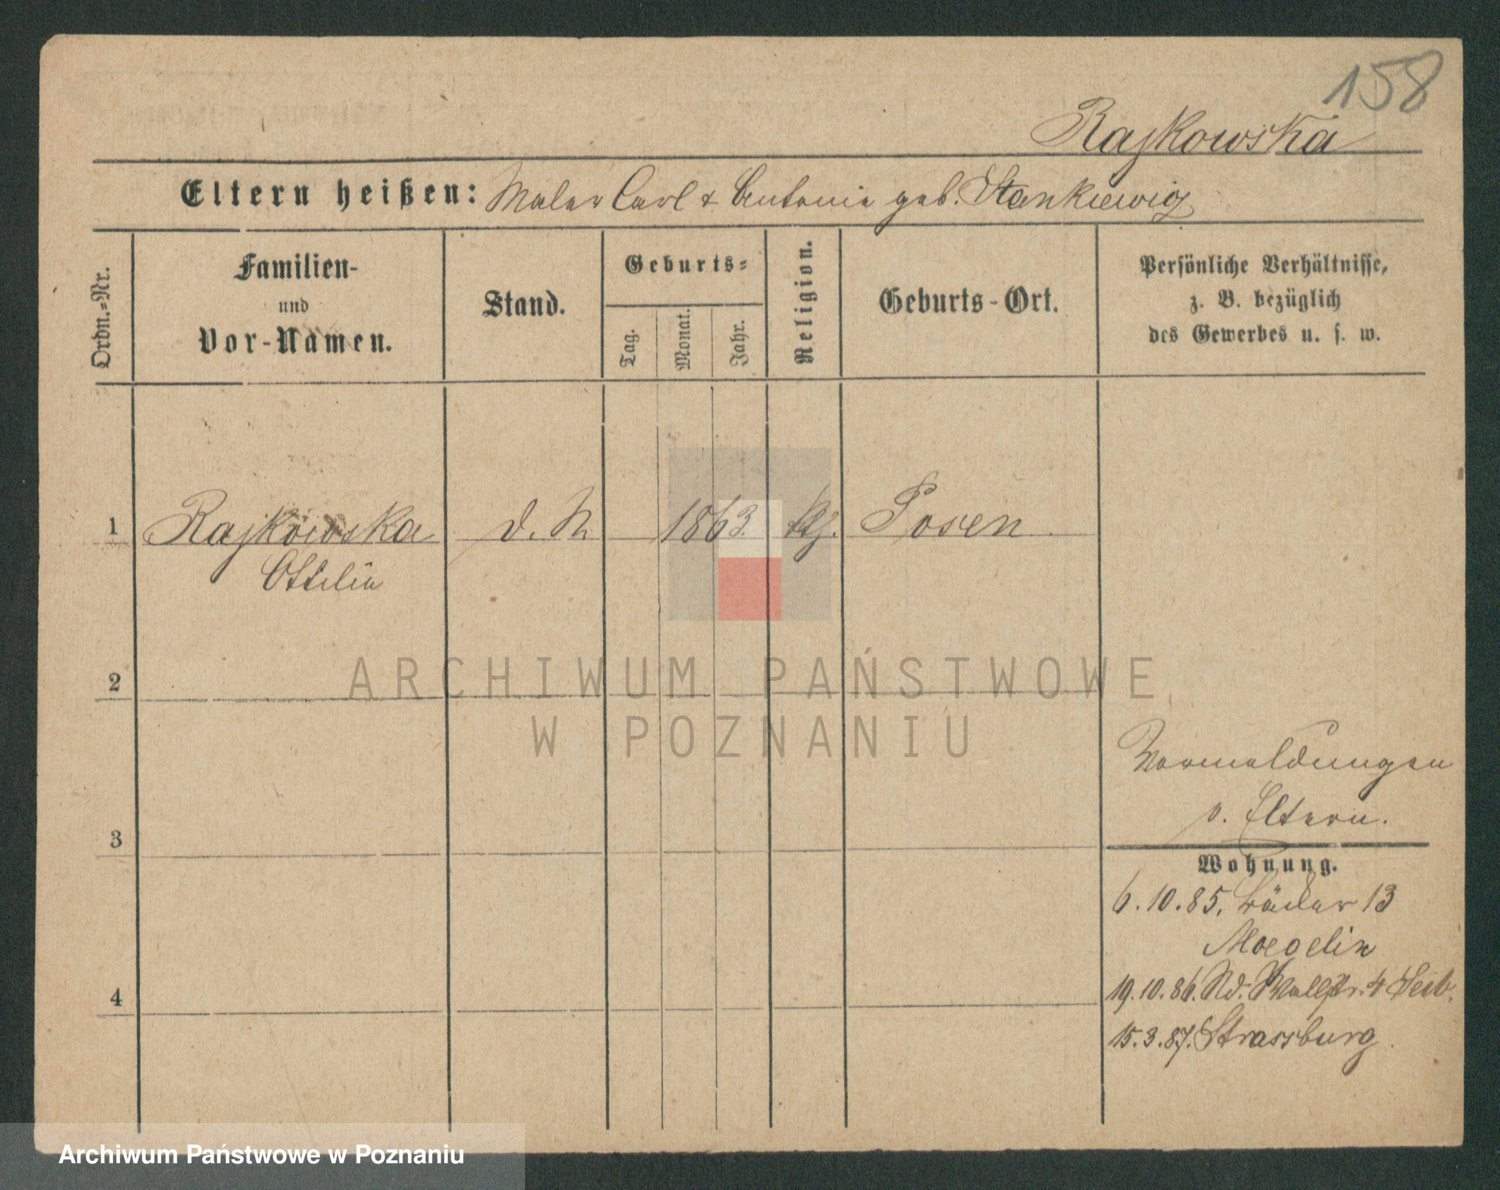 158
Rajkowska
Eltern heißen: Maler Carl & Antonie geb. Stankiewicz
Ordn.-Nr.
Familien-
und
Vor-Namen.
Stand.
Geburts-
Tag.
Monat.
Jahr.
Religion.
Geburts-Ort.
Persönliche Verhältnisse,
z. B. bezüglich
des Gewerbes u. s. w.
1 Rajkowska d. N 1863. Posen
Ottilie
ARCHIWUM PAŃSTWOWE
W POZNANIU
2
3
4
v. Eltern.
Wohnung.
6.10.85. Bäder 13
Moegelin
19.10.86. Wallstr. 4
15.3.87. Strassburg.
Archiwum Państwowe w Poznaniu